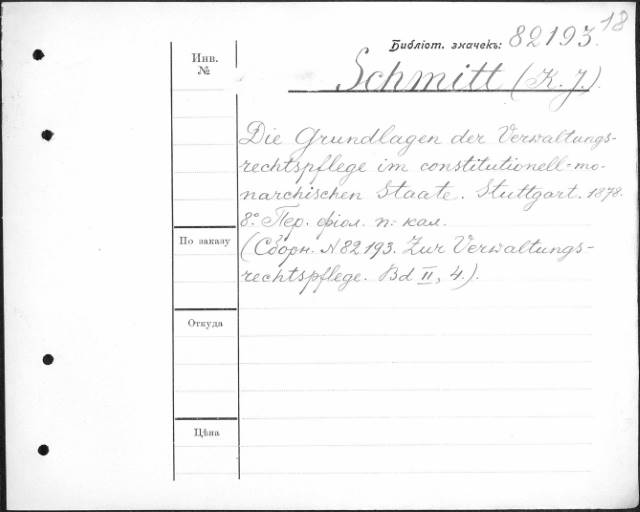 18
Библіот. значекъ: 82193.
Инв.
№
Schmitt (K. J.)
Die Grundlagen der Verwaltungs-
rechtspflege im constitutionell-mo-
narchischen Staate. Stuttgart. 1878.
8° Пер. фіол. п: кал.
(Сборн. № 82193. Zur Verwaltungs-
rechtspflege. Bd II, 4.).
По заказу
Откуда
Цѣна